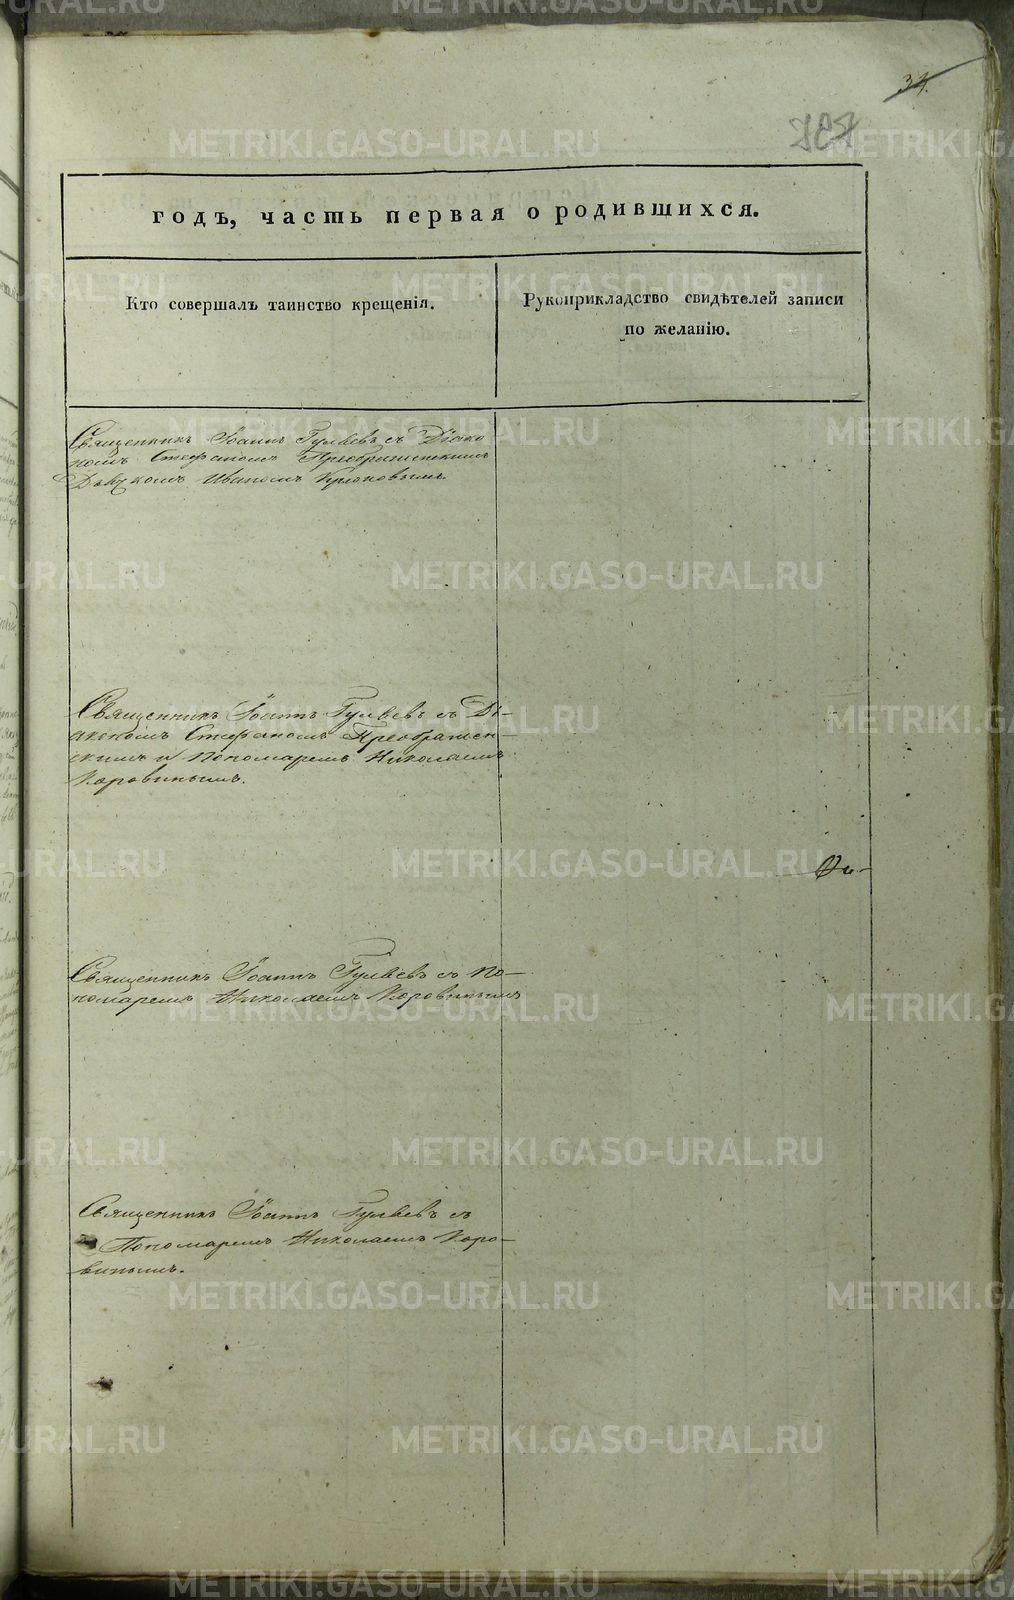 34.
годъ, часть первая о родившихся.
Кто совершалъ таинство крещенія.
Рукоприкладство свидѣтелей записи
по желанію.
Священникъ Іоаннъ Гуляевъ съ Діако
номъ Стефаномъ Преображенскимъ
Иваномъ
Священникъ Іоаннъ Гуляевъ съ Ді-
акономъ Стефаномъ Преображен-
скимъ и Пономаремъ Николаемъ
Коровинымъ.
Священникъ Іоаннъ Гуляевъ съ По-
номаремъ Николаемъ Коровинымъ
Священникъ Іоаннъ Гуляевъ съ
Пономаремъ Николаемъ Коро-
винымъ.
METRIKI.GASO-URAL.RU